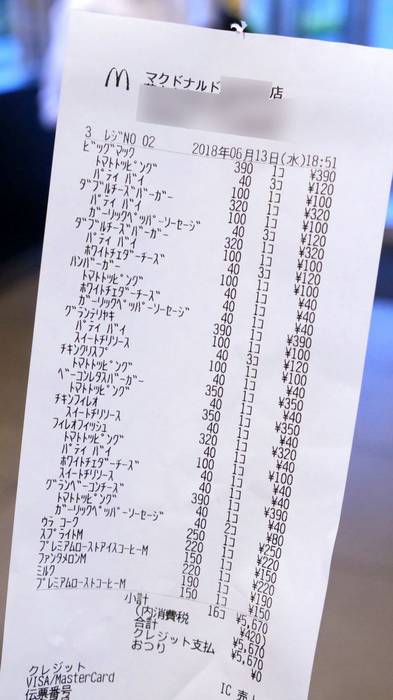 マクドナルド 店
3 ﾚｼﾞNO 02 2018年06月13日(水)18:51
ﾋﾞｯｸﾞﾏｯｸ 390 1ｺ ¥390
ﾄﾏﾄﾄｯﾋﾟﾝｸﾞ 40 3ｺ ¥120
ﾊﾟﾃｨ ﾊﾞｲ 100 1ｺ ¥100
ﾀﾞﾌﾞﾙﾁｰｽﾞﾊﾞｰｶﾞｰ 320 1ｺ ¥320
ﾊﾟﾃｨ ﾊﾞｲ 100 1ｺ ¥100
ｶﾞｰﾘｯｸﾍﾟｯﾊﾟｰｿｰｾｰｼﾞ 40 3ｺ ¥120
ﾀﾞﾌﾞﾙﾁｰｽﾞﾊﾞｰｶﾞｰ 320 1ｺ ¥320
ﾊﾟﾃｨ ﾊﾞｲ 100 1ｺ ¥100
ﾎﾜｲﾄﾁｪﾀﾞｰﾁｰｽﾞ 40 3ｺ ¥120
ﾊﾝﾊﾞｰｶﾞｰ 100 1ｺ ¥100
ﾄﾏﾄﾄｯﾋﾟﾝｸﾞ 40 1ｺ ¥40
ﾎﾜｲﾄﾁｪﾀﾞｰﾁｰｽﾞ 40 1ｺ ¥40
ｶﾞｰﾘｯｸﾍﾟｯﾊﾟｰｿｰｾｰｼﾞ 40 1ｺ ¥40
ｸﾞﾗﾝﾃﾘﾔｷ 390 1ｺ ¥390
ﾊﾟﾃｨ ﾊﾞｲ 100 1ｺ ¥100
ｽｲｰﾄﾁﾘｿｰｽ 40 3ｺ ¥120
ﾁｷﾝｸﾘｽﾌﾟ 100 1ｺ ¥100
ﾄﾏﾄﾄｯﾋﾟﾝｸﾞ 40 1ｺ ¥40
ﾍﾞｰｺﾝﾚﾀｽﾊﾞｰｶﾞｰ 350 1ｺ ¥350
ﾄﾏﾄﾄｯﾋﾟﾝｸﾞ 40 1ｺ ¥40
ﾁｷﾝﾌｨﾚｵ 350 1ｺ ¥350
ｽｲｰﾄﾁﾘｿｰｽ 40 1ｺ ¥40
ﾌｨﾚｵﾌｨｯｼｭ 320 1ｺ ¥320
ﾄﾏﾄﾄｯﾋﾟﾝｸﾞ 40 1ｺ ¥40
ﾊﾟﾃｨ ﾊﾞｲ 100 1ｺ ¥100
ﾎﾜｲﾄﾁｪﾀﾞｰﾁｰｽﾞ 40 1ｺ ¥40
ｽｲｰﾄﾁﾘｿｰｽ 40 1ｺ ¥40
ｸﾞﾗﾝﾍﾞｰｺﾝﾁｰｽﾞ 390 1ｺ ¥390
ﾄﾏﾄﾄｯﾋﾟﾝｸﾞ 40 1ｺ ¥40
ｶﾞｰﾘｯｸﾍﾟｯﾊﾟｰｿｰｾｰｼﾞ 40 2ｺ ¥80
ｳﾗ ｺｰｸ 250 1ｺ ¥250
ｽﾌﾟﾗｲﾄM 220 1ｺ ¥220
ﾌﾟﾚﾐｱﾑﾛｰｽﾄｱｲｽｺｰﾋｰM 150 1ｺ ¥150
ﾌｧﾝﾀﾒﾛﾝM 220 1ｺ ¥220
ﾐﾙｸ 190 1ｺ ¥190
ﾌﾟﾚﾐｱﾑﾛｰｽﾄｺｰﾋｰM 150 1ｺ ¥150
小計 16ｺ ¥5,670
(内消費税 ¥420)
合計 ¥5,670
クレジット支払 ¥5,670
おつり ¥0
クレジット
VISA/MasterCard IC 売
伝票番号